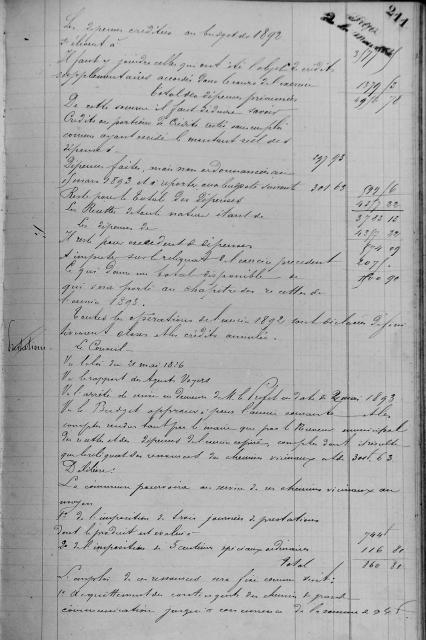 211
Les dépenses créditées au budget de 1892
s'élèvent à
Il faut y joindre celles qui ont été l'objet de crédits
supplémentaires accordés dans le cours de l'exercice
Total des dépenses présumées
De cette somme il faut déduire savoir
Crédits ou portions de crédits restés sans emploi
comme ayant excédé le montant réel des
dépenses 197 93
Dépenses faites, mais non ordonnancées au
mars 1893 et à reporter au budget suivant 301 63
Reste pour le total des Dépenses 4317 22
Les Recettes de toute nature étant de 3782 13
Les dépenses de 4317 22
Il reste pour excédent de dépenses
A imputer sur le reliquat de l'exercice précédent
Ce qui donne un total disponible de
qui sera porté au chapitre des recettes de
l'exercice 1893.
Toutes les opérations de l'exercice 1892 sont déclarées défini
tivement closes et les crédits annulés.
Prestations
Le Conseil
Vu la loi du 21 mai 1836
Vu le rapport des Agents Voyers
Vu l'arrêté de mise en demeure de M. le Préfet en date du 2 mai 1893
Vu le Budget approuvé pour l'année courante et les
comptes rendus tant par le maire que par le Receveur municipal
des recettes et des dépenses de l'exercice expiré, comptes dont il résulte
que le reliquat des ressources des chemins vicinaux est de 301f 63
Délibère:
La commune pourvoira au service de ses chemins vicinaux au
moyen
1° de l'imposition de trois journées de prestations
dont le produit est évalué 744f
2° de l'imposition de 5 centimes spéciaux ordinaires 116 80
Total 860 80
L'emploi de ces ressources sera fixé comme suit:
1° Acquittement des contingents des chemins de grande
communication jusqu'à concurrence de la somme de 245f